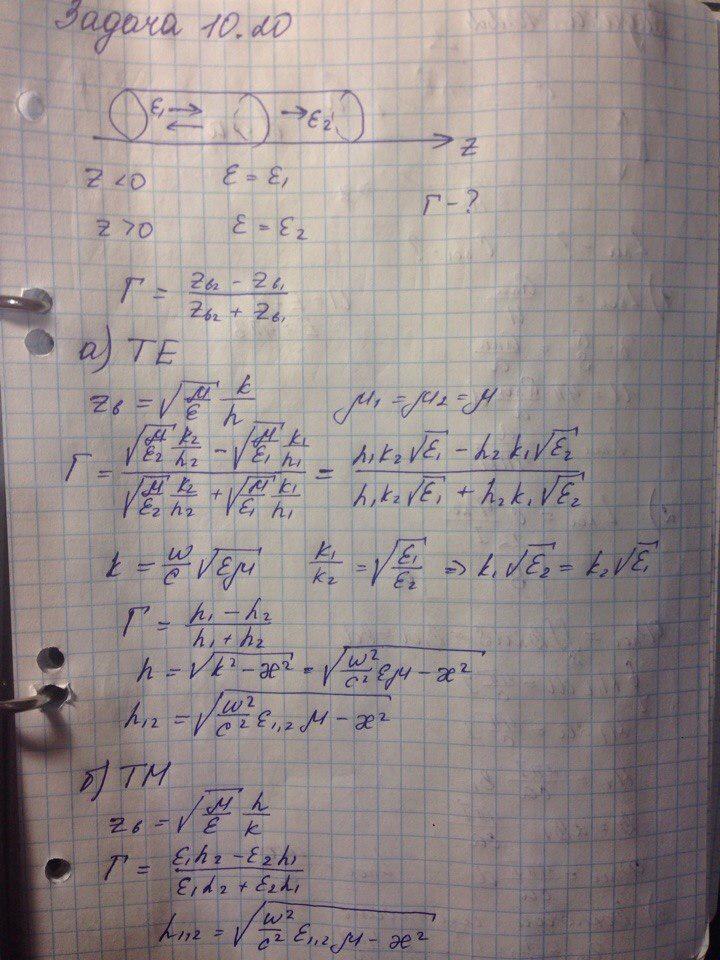 Задача 10.20
ε₁ → ← → ε₂ z
z < 0 ε = ε₁
Γ - ?
z > 0 ε = ε₂
Γ = (z_в₂ - z_в₁) / (z_в₂ + z_в₁)
а) TE
z_в = √(μ/ε) k/h μ₁ = μ₂ = μ
Γ = (√(μ/ε₂) k₂/h₂ - √(μ/ε₁) k₁/h₁) / (√(μ/ε₂) k₂/h₂ + √(μ/ε₁) k₁/h₁) = (h₁k₂√ε₁ - h₂k₁√ε₂) / (h₁k₂√ε₁ + h₂k₁√ε₂)
k = ω/c √(εμ) k₁/k₂ = √(ε₁/ε₂) => k₁√ε₂ = k₂√ε₁
Γ = (h₁ - h₂) / (h₁ + h₂)
h = √(k² - æ²) = √(ω²/c² εμ - æ²)
h₁,₂ = √(ω²/c² ε₁,₂ μ - æ²)
б) TM
z_в = √(μ/ε) h/k
Γ = (ε₁h₂ - ε₂h₁) / (ε₁h₂ + ε₂h₁)
h₁,₂ = √(ω²/c² ε₁,₂ μ - æ²)